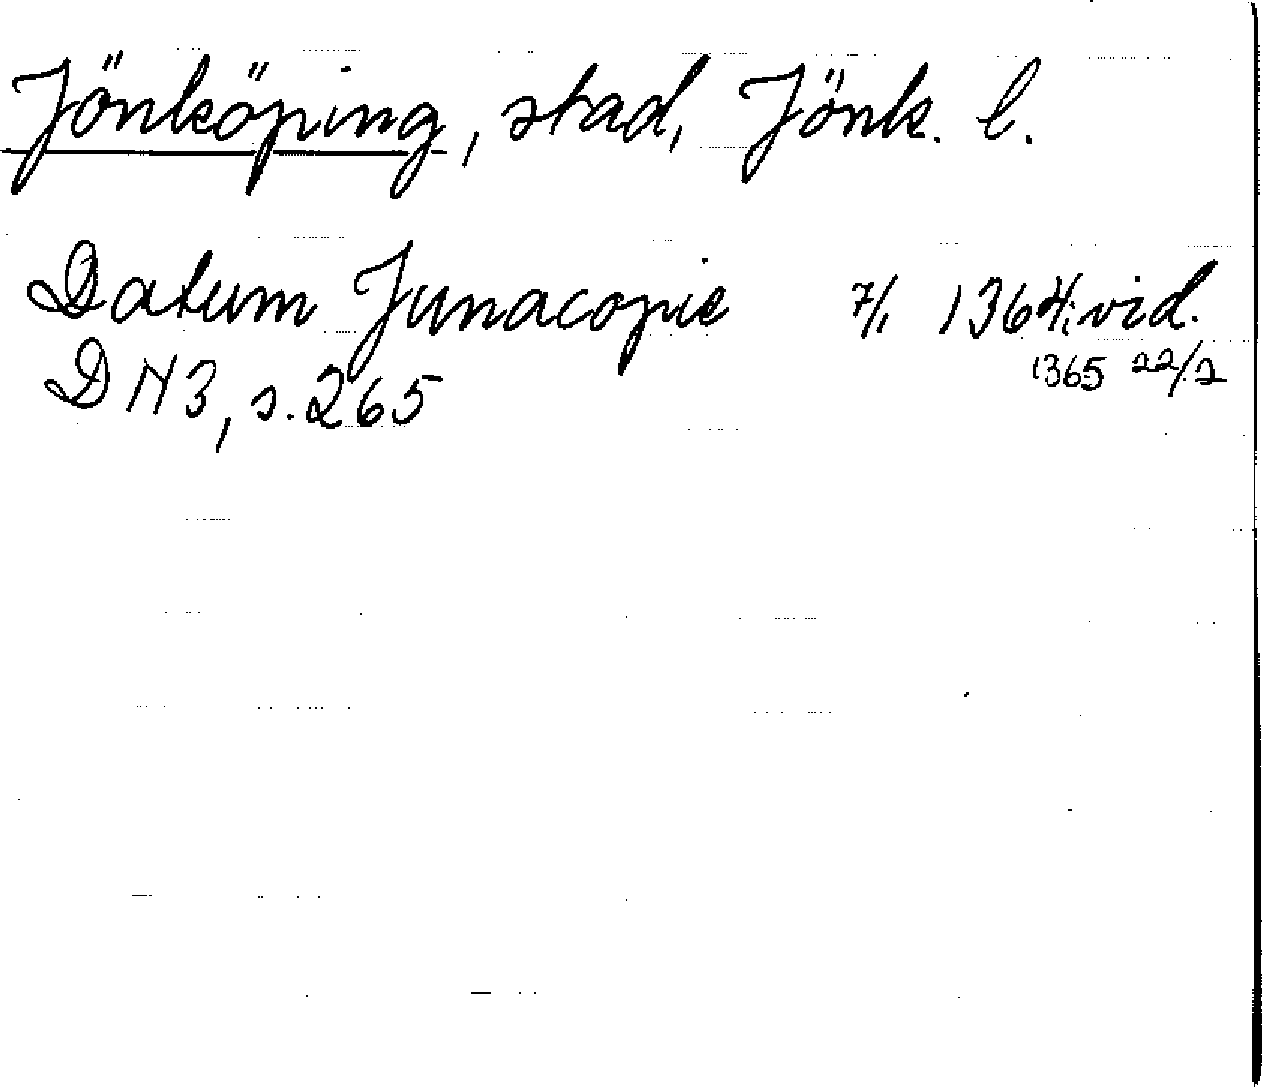 Jönköping, stad, Jönk. l.
Datum Junacopie 7/1 1364; vid.
1365 22/2
DN3, s. 265